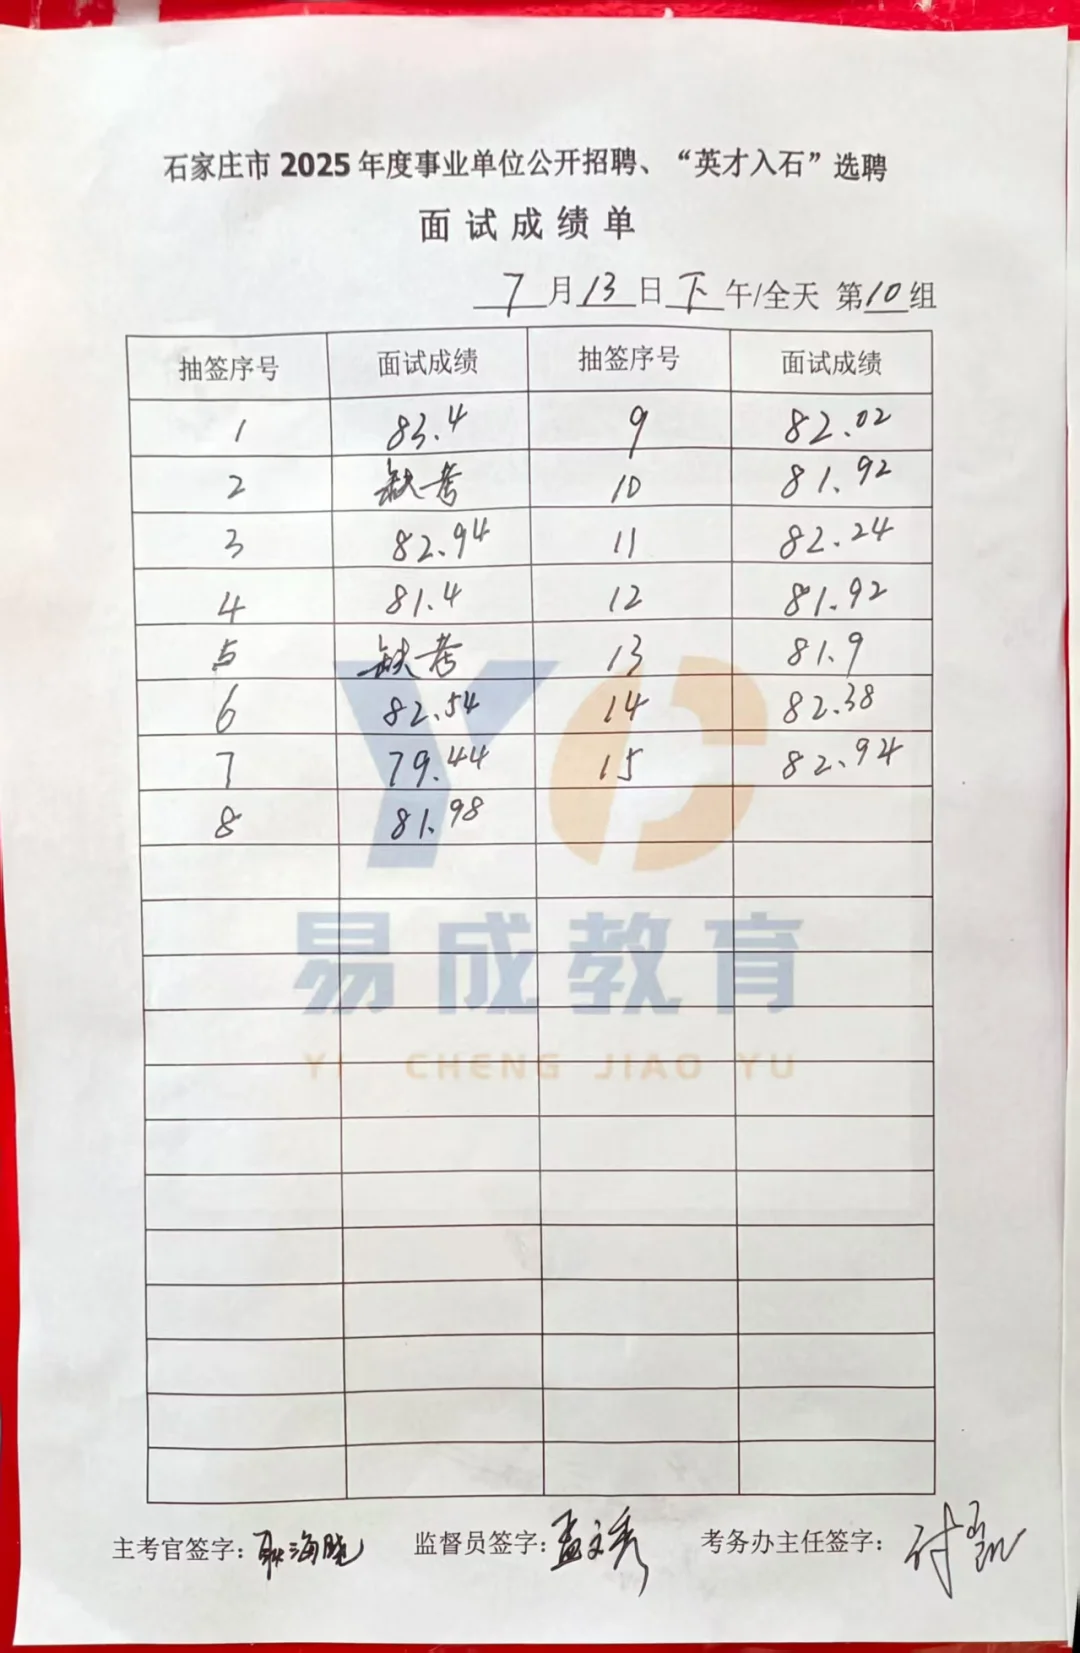 石家庄市 2025 年度事业单位公开招聘、“英才入石”选聘
面试成绩单
7月13日下午/全天 第10组
抽签序号 面试成绩 抽签序号 面试成绩
1 83.4 9 82.02
2 缺考 10 81.92
3 82.94 11 82.24
4 81.4 12 81.92
5 缺考 13 81.9
6 82.54 14 82.38
7 79.44 15 82.94
8 81.98
YC
易成教育
YI CHENG JIAO YU
主考官签字：耿海晓 监督员签字：孟文秀 考务办主任签字：